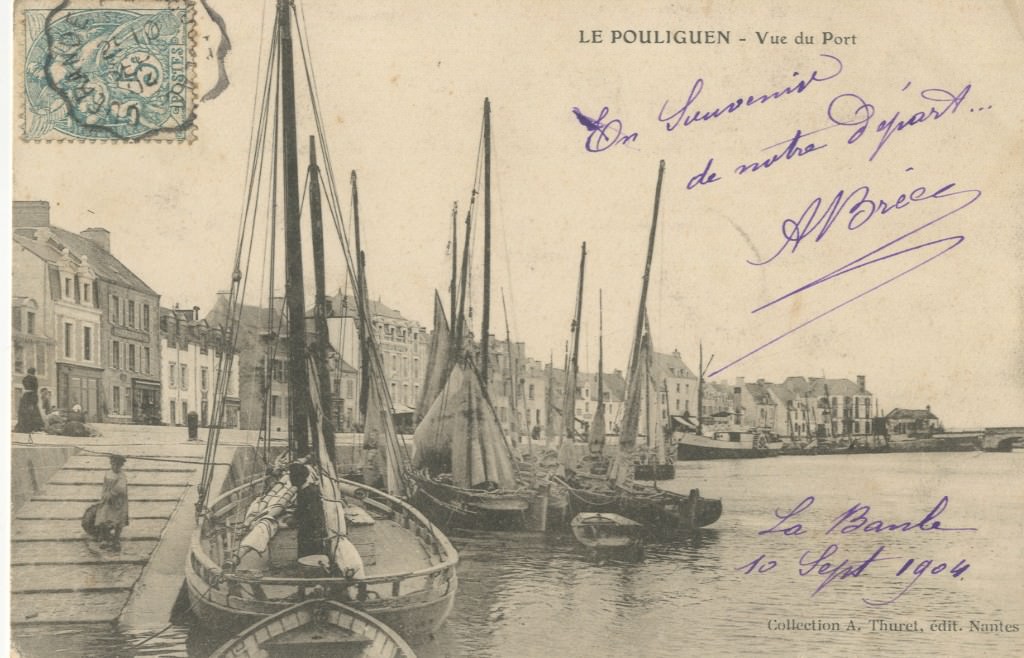 LE POULIGUEN - Vue du Port
En Souvenir
de notre départ...
La Baule
10 Sept 1904.
Collection A. Thuret, édit. Nantes
POSTES